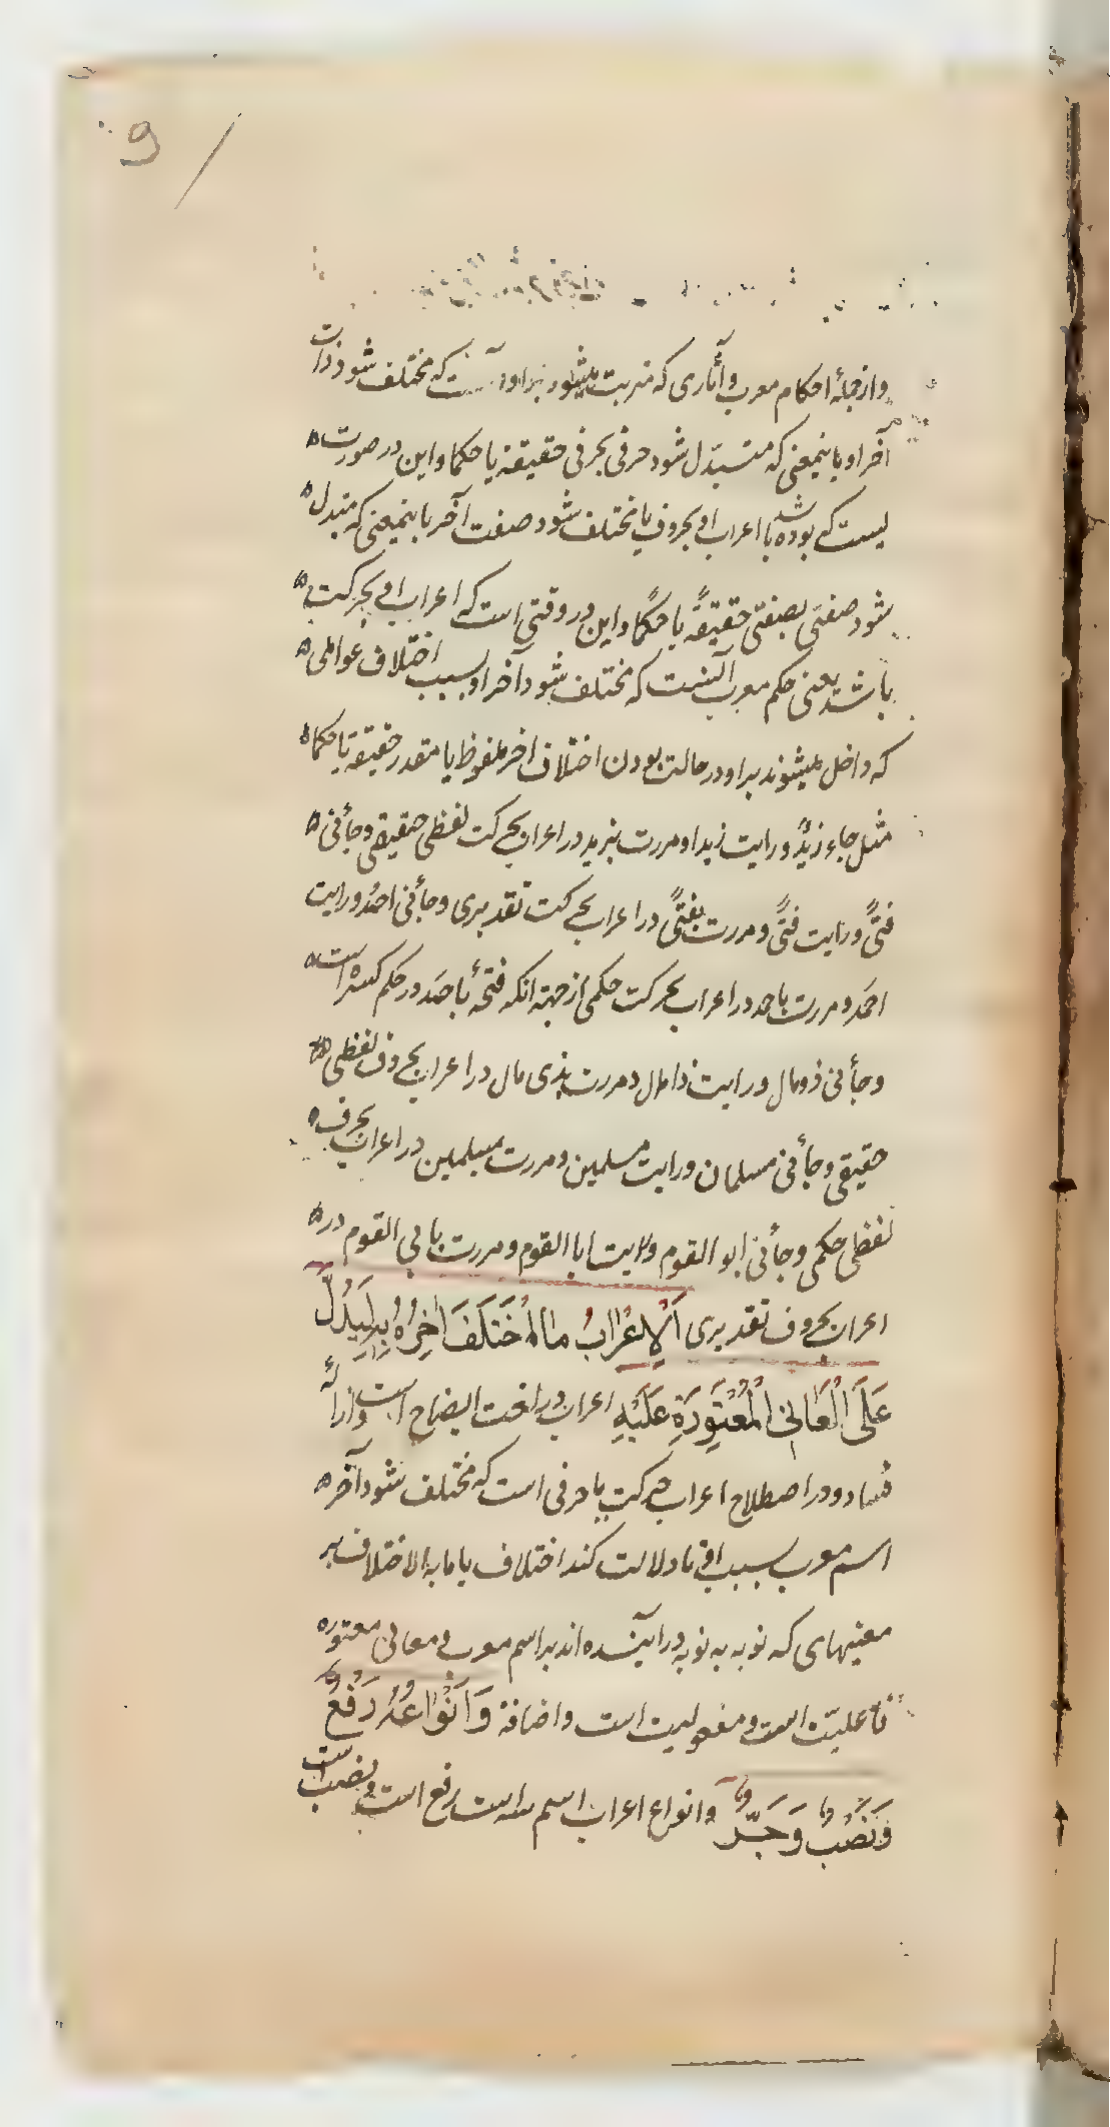 9
وازجملهٔ احکام معرب وآثاری که مترتب میشود براو آنست که مختلف شود ذات
آخر او باینمعنی که متبدّل شود حرفی بحرفی حقیقة یا حکما واین در صورت
یست که بوده باشد اعراب او بحروف یا مختلف شود صفت آخر باینمعنی که متبدل
شود صفتی بصفتی حقیقةً یا حکمًا واین در وقتی است که اعراب او بحرکت
باشد یعنی حکم معرب آنست که مختلف شود آخر او بسبب اختلاف عواملی
که داخل میشوند براو در حالت بودن اختلاف اخر ملفوظ یا مقدر حقیقة یا حکما
مثل جاء زیدٌ ورایت زیدا ومررت بزید در اعراب بحرکت لفظی حقیقی وجأنی
فتًی ورایت فتًی ومررت بفتًی در اعراب بحرکت تقدیری وجأنی احمدُ ورایت
احمَد ومررت باحمد در اعراب بحرکت حکمی ازجهة انکه فتحهٔ باحمَد در حکم کسره است
وجأنی ذو مال ورایت ذا مال ومررت بذی مال در اعراب بحروف لفظی
حقیقی وجأنی مسلمان ورایت مسلمین ومررت بمسلمین در اعراب بحرف
لفظی حکمی وجأنی ابو القوم ورایت ابا القوم ومررت بابی القوم در
اعراب بحروف تقدیری اَلْاِعْرَابُ مَا اخْتَلَفَ اٰخِرُهُ بِهِ لِیَدُلَّ
عَلَی الْمَعَانِی الْمُعْتَوِرَةِ عَلَیْهِ اعراب در لغت ایضاح است وازالهٔ
فساد ودر اصطلاح اعراب حرکت یا حرفی است که مختلف شود آخر
اسم معرب بسبب او تا دلالت کند اختلاف یا ما به الاختلاف بر
معنیهای که نوبه به نوبه در آینده اند بر اسم معرب ومعانی معتوره
فاعلیّت است ومفعولیت است واضافة وَاَنْوَاعُهُ رَفْعٌ
وَنَصْبٌ وَجَرٌّ وانواع اعراب اسم سه است رفع است ونصب است